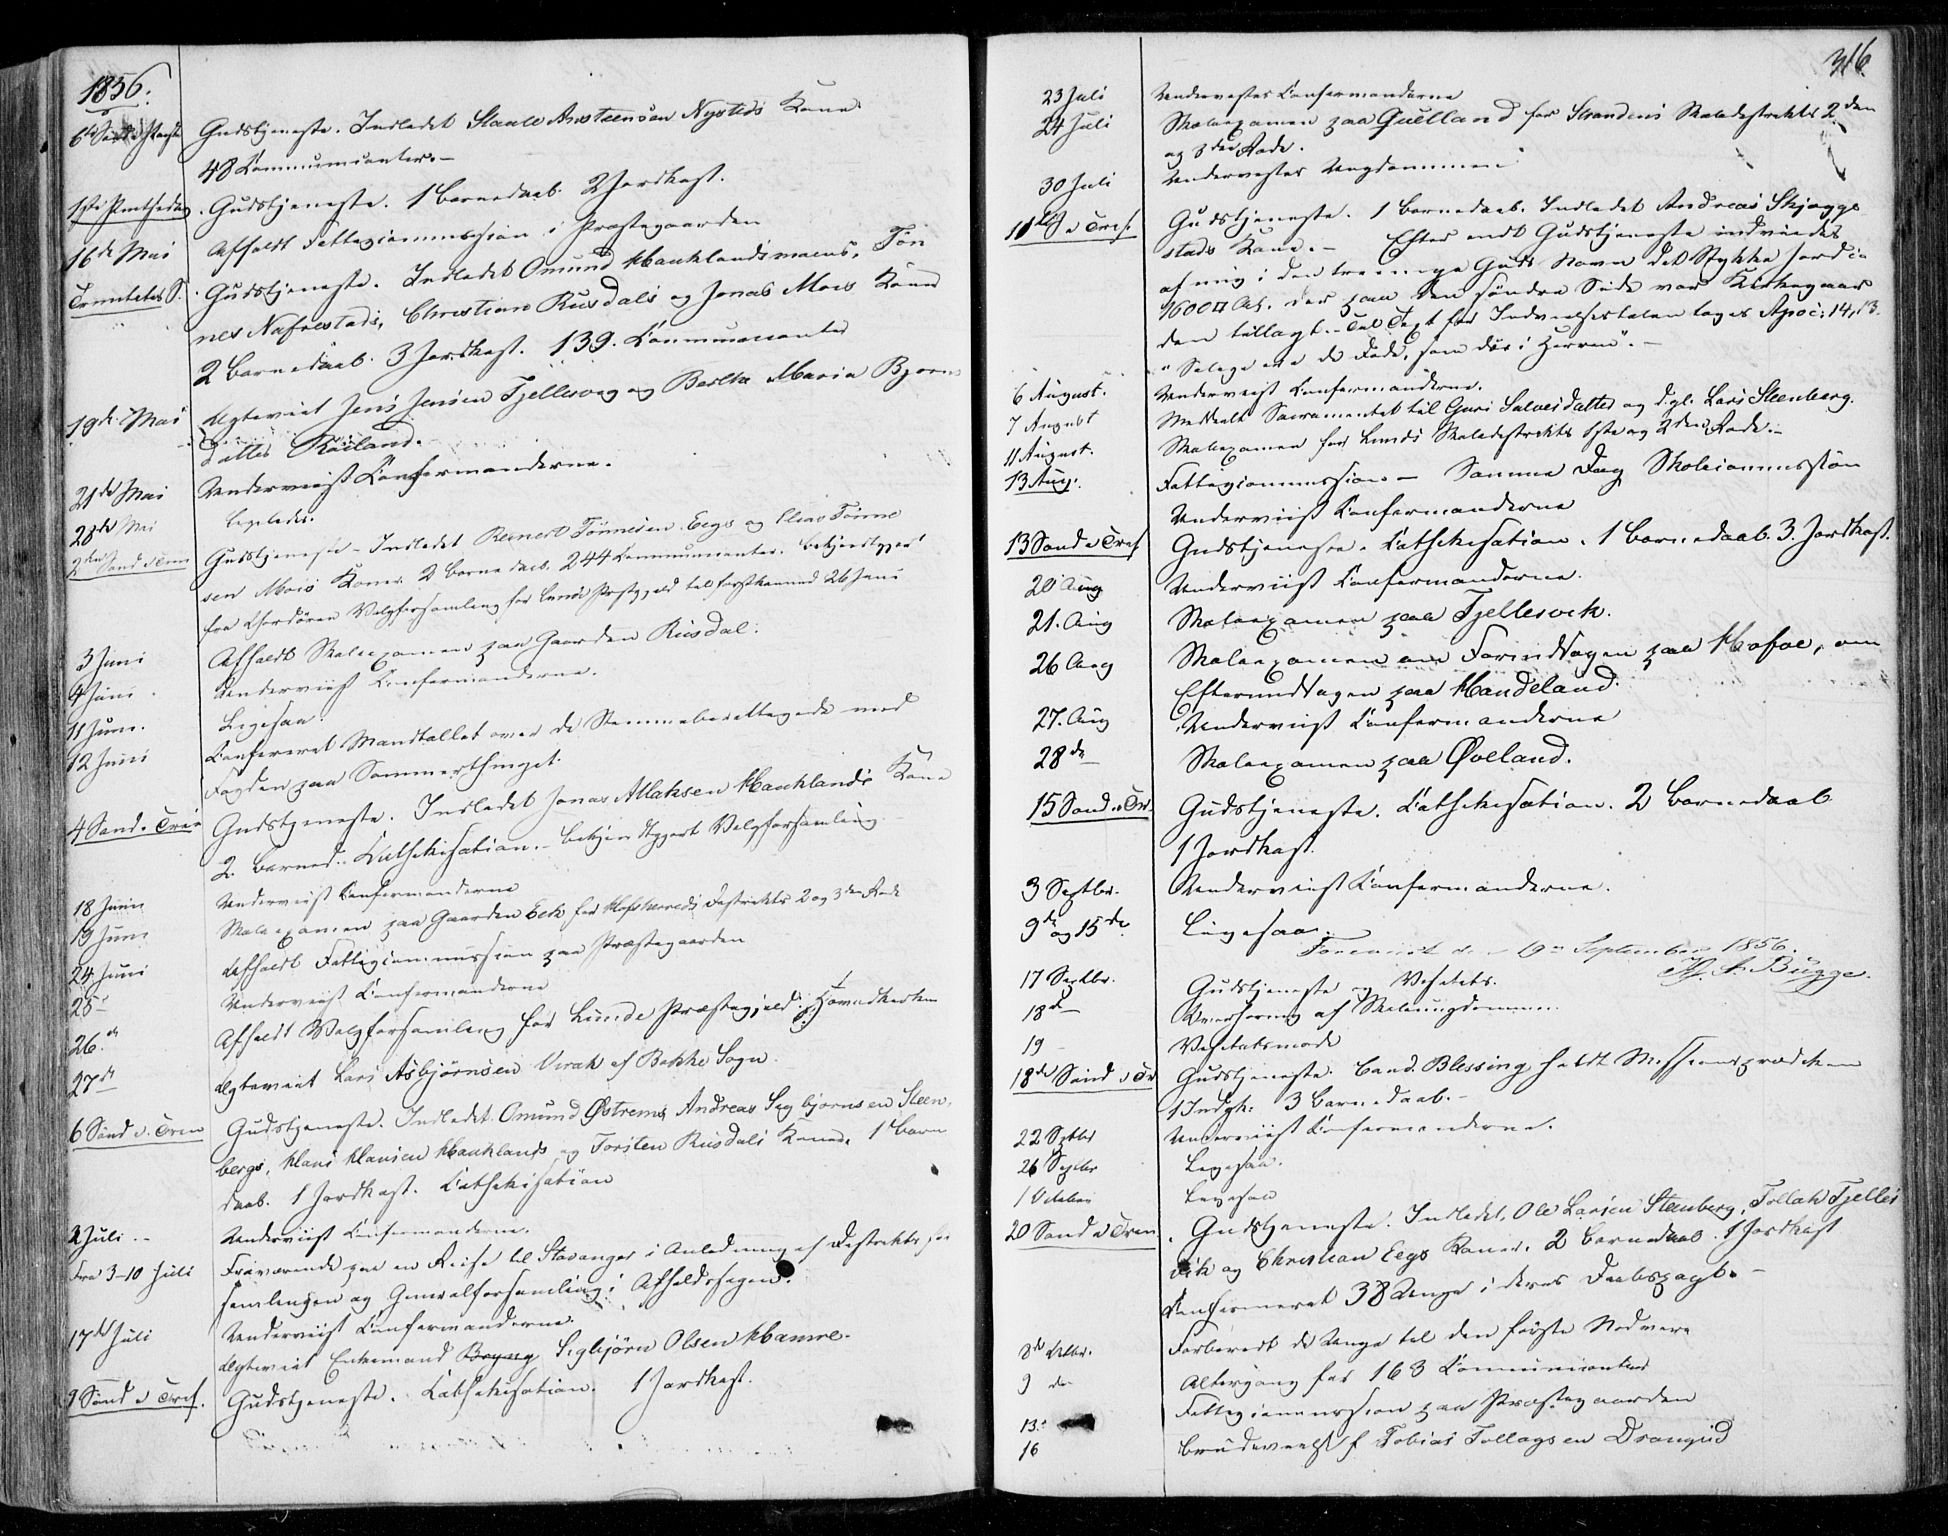 1856.
6te Sønd. e. Paaske Gudstjeneste. Indledet Staale Austeensen Nysteds Kone.
48 Communicanter. –
1ste Pintsedag. Gudstjeneste. 1 Barnedaab. 2 Jordkast.
16de Mai Afholdt Fattigcommission i Præstegaarden
Trinitatis S. Gudstjeneste. Indledet Omund Hauklandsmoens, Tøn
nes Nafrestads, Christian Rusdals og Jonas Mois Koner
2 Barnedaab. 3 Jordkast. 139. Communicanter
19de Mai Ægteviet Jens Jensen Fjellesvag og Bertha Maria Bjorns
datter Røiland.
21de Mai Underviist Confirmanderne.
28de Mai Ligeledes.
2den Sønd e Trin Gudstjeneste – Indledet Reinert Tønnesen Eegs og Elias Tønne
sen Mois Koner. 2 Barnedaab. 244 Communicanter. Bekjendtgjort
fra Chordøren Valgforsamling for Lunds Præstgjeld til førstkommend 26 Juni
3 Juni Afholdt Skoleexamen paa Gaarden Rusdal.
4 Juni Underviist Confirmanderne.
11 Juni. Ligesaa.
12 Juni Confereret Mandtallet over de Stemmeberettigede med
Fogden paa Sommerthinget.
4 Sønd. e. Trin Gudstjeneste. Indledet Jonas Atlaksen Hauklands Kone
2. Barned.. Cathekisation. – Bekjendtgjort Valgforsamling
18 Juni Underviist Confirmanderne
19 Juni Skoleexamen paa Gaarden Eek for Hofsherreds Distrikts 2 og 3den Rode
24 Juni Afholdt Fattigcommission paa Præstegaarden
25 – Underviist Confirmanderne
26. de Afholdt Valgforsamling for Lunde Præstegjeld i Hovedkirken
27 de Ægteviet Lars Asbjørnsen Virak af Bakke Sogn.
6 Sønd. e. Trin Gudstjeneste. Indledet Omund Østrems, Andreas Sigbjornsen Steen
bergs, Hans Hansen Hauklands og Torsten Rusdals Koner. 1 Barn
daab. 1 Jordkast. Cathekisation
2 Juli. – Underviist Confirmanderne.
Fra 3–10 Juli Fraværende paa en Reise til Stavanger i Anledning af Distrikts for
samlingen og Generalforsamling i Afholdssagen.
17de Juli Underviist Confirmanderne.
Ægteviet Enkemand Sigbjörn Olsen Hamre.
9 Sønd e Tref. Gudstjeneste. Cathekisation. 1 Jordkast.
316.
23 Juli Underviistes Confirmanderne
24 Juli Skoleexamen paa Guelland for Strandens Skoledistrikts 2den
og 3die Rode.
30 Juli Underviistes Ungdommen
11te S e Tref. Gudstjeneste. 1 Barnedaab. Indledet Andreas Skjægge
stads Kone. – Efter endt Gudstjeneste indviedes
af mig i den treenige Guds Navn det Stykke Jord ca
1600 □ Al. der paa den søndre Side var Kirkegaar
den tillagt. – Til Text for Indvielsestalen toges Apoc: 14,13.
"Salige ere de Døde, som döe i Herren". –
6 August. Underviist Confirmanderne.
7 August Meddeelt Sacramentet til Guri Salvesdatter og d. gl. Lars Steenberg.
11 August. Skoleexamen for Lunds Skoledistrikts 1ste og 2den Rode. –
13 Aug. Fattigcommission – Samme Dag Skolecommission
Underviist Confirmanderne
13 Sønd e Tref Gudstjeneste. Cathekisation. 1 Barnedaab. 3. Jordkast.
20 Aug Underviist Confirmanderne.
21. Aug Skoleexamen paa Fjellesvek.
26 Aug Skoleexamen om Formiddagen paa Hofoe, om
Eftermiddagen paa Haudeland.
27. Aug Underviist Confirmanderne
28 de Skoleexamen paa Øveland.
15 Sønd. e Tr. Gudstjeneste. Cathekisation. 2 Barnedaab
1 Jordkast.
3 Septbr. Underviist Confirmanderne.
9de og 15de Ligesaa.
Foreviist September 1856.
Bugge.
17 Septbr. Gudstjeneste og Visitats.
18 d – Overhøring af Skoleungdommen.
19 – Visitatsmøde
18de Sønd e Tr Gudstjeneste. Cand. Blessing holdt Missionsprædiken
1 Indgk: 3 Barnedaab. –
22 Sptbr Underviist Confirmanderne.
26 Septbr Ligesaa.
1 October Ligesaa
20 Sønd e Tren Gudstjeneste. Indledet, Ole Larsen Steenberg, Tollak Fjelles
vik og Christian Eegs Koner. 2 Barnedaab. 1 Jordkast
Confirmeret 38 Unge i deres Daabspagt. –
8de Octbr. Forberedt de Unge til den første Nadvere
9 de Altergang for 163 Communicanter
13. Fattigcommission paa Præstegaarden
16 Brudeviet f Tobias Tollagsen Drangeid